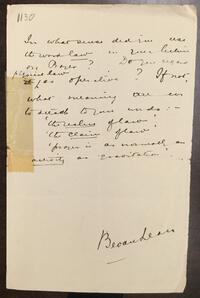 1130
In what sense did you use
the word law in your lecture
on Prayer? Do you regard
physical law
as operative? If not,
what meaning are we
to attach to your words:-
'the realm of law'
'the claim of law'
'prayer is as normal an
activity as gravitation'
Bevan Lean